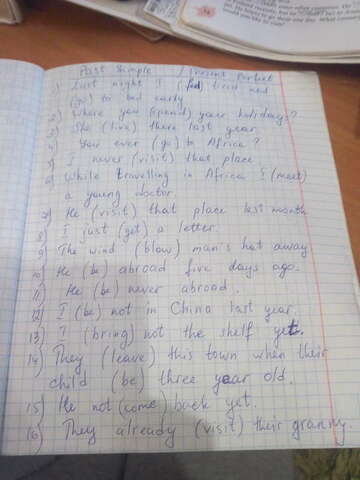 Past Simple / Present Perfect
1) Last night I (feel) tired and
(go) to bed early
2) Where you (spend) your holidays?
3) She (live) there last year
4) You ever (go) to Africa?
5) I never (visit) that place
6) While travelling in Africa I (meet)
a young doctor.
7) He (visit) that place last month
8) I just (get) a letter.
9) The wind (blow) man's hat away
10) He (be) abroad five days ago.
11) He (be) never abroad.
12) I (be) not in China last year.
13) I (bring) not the shelf yet.
14) They (leave) this town when their
child (be) three year old.
15) He not (come) back yet.
16) They already (visit) their granny.